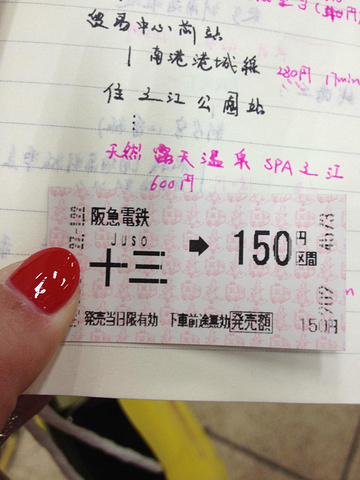 貿易中心前站
南港港城線 280円 17min
住之江公園站
天然露天温泉 SPA之江
600円
阪急電鉄
JUSO
十三 ➡ 150円区間
発売当日限有効 下車前途無効 発売額 150円